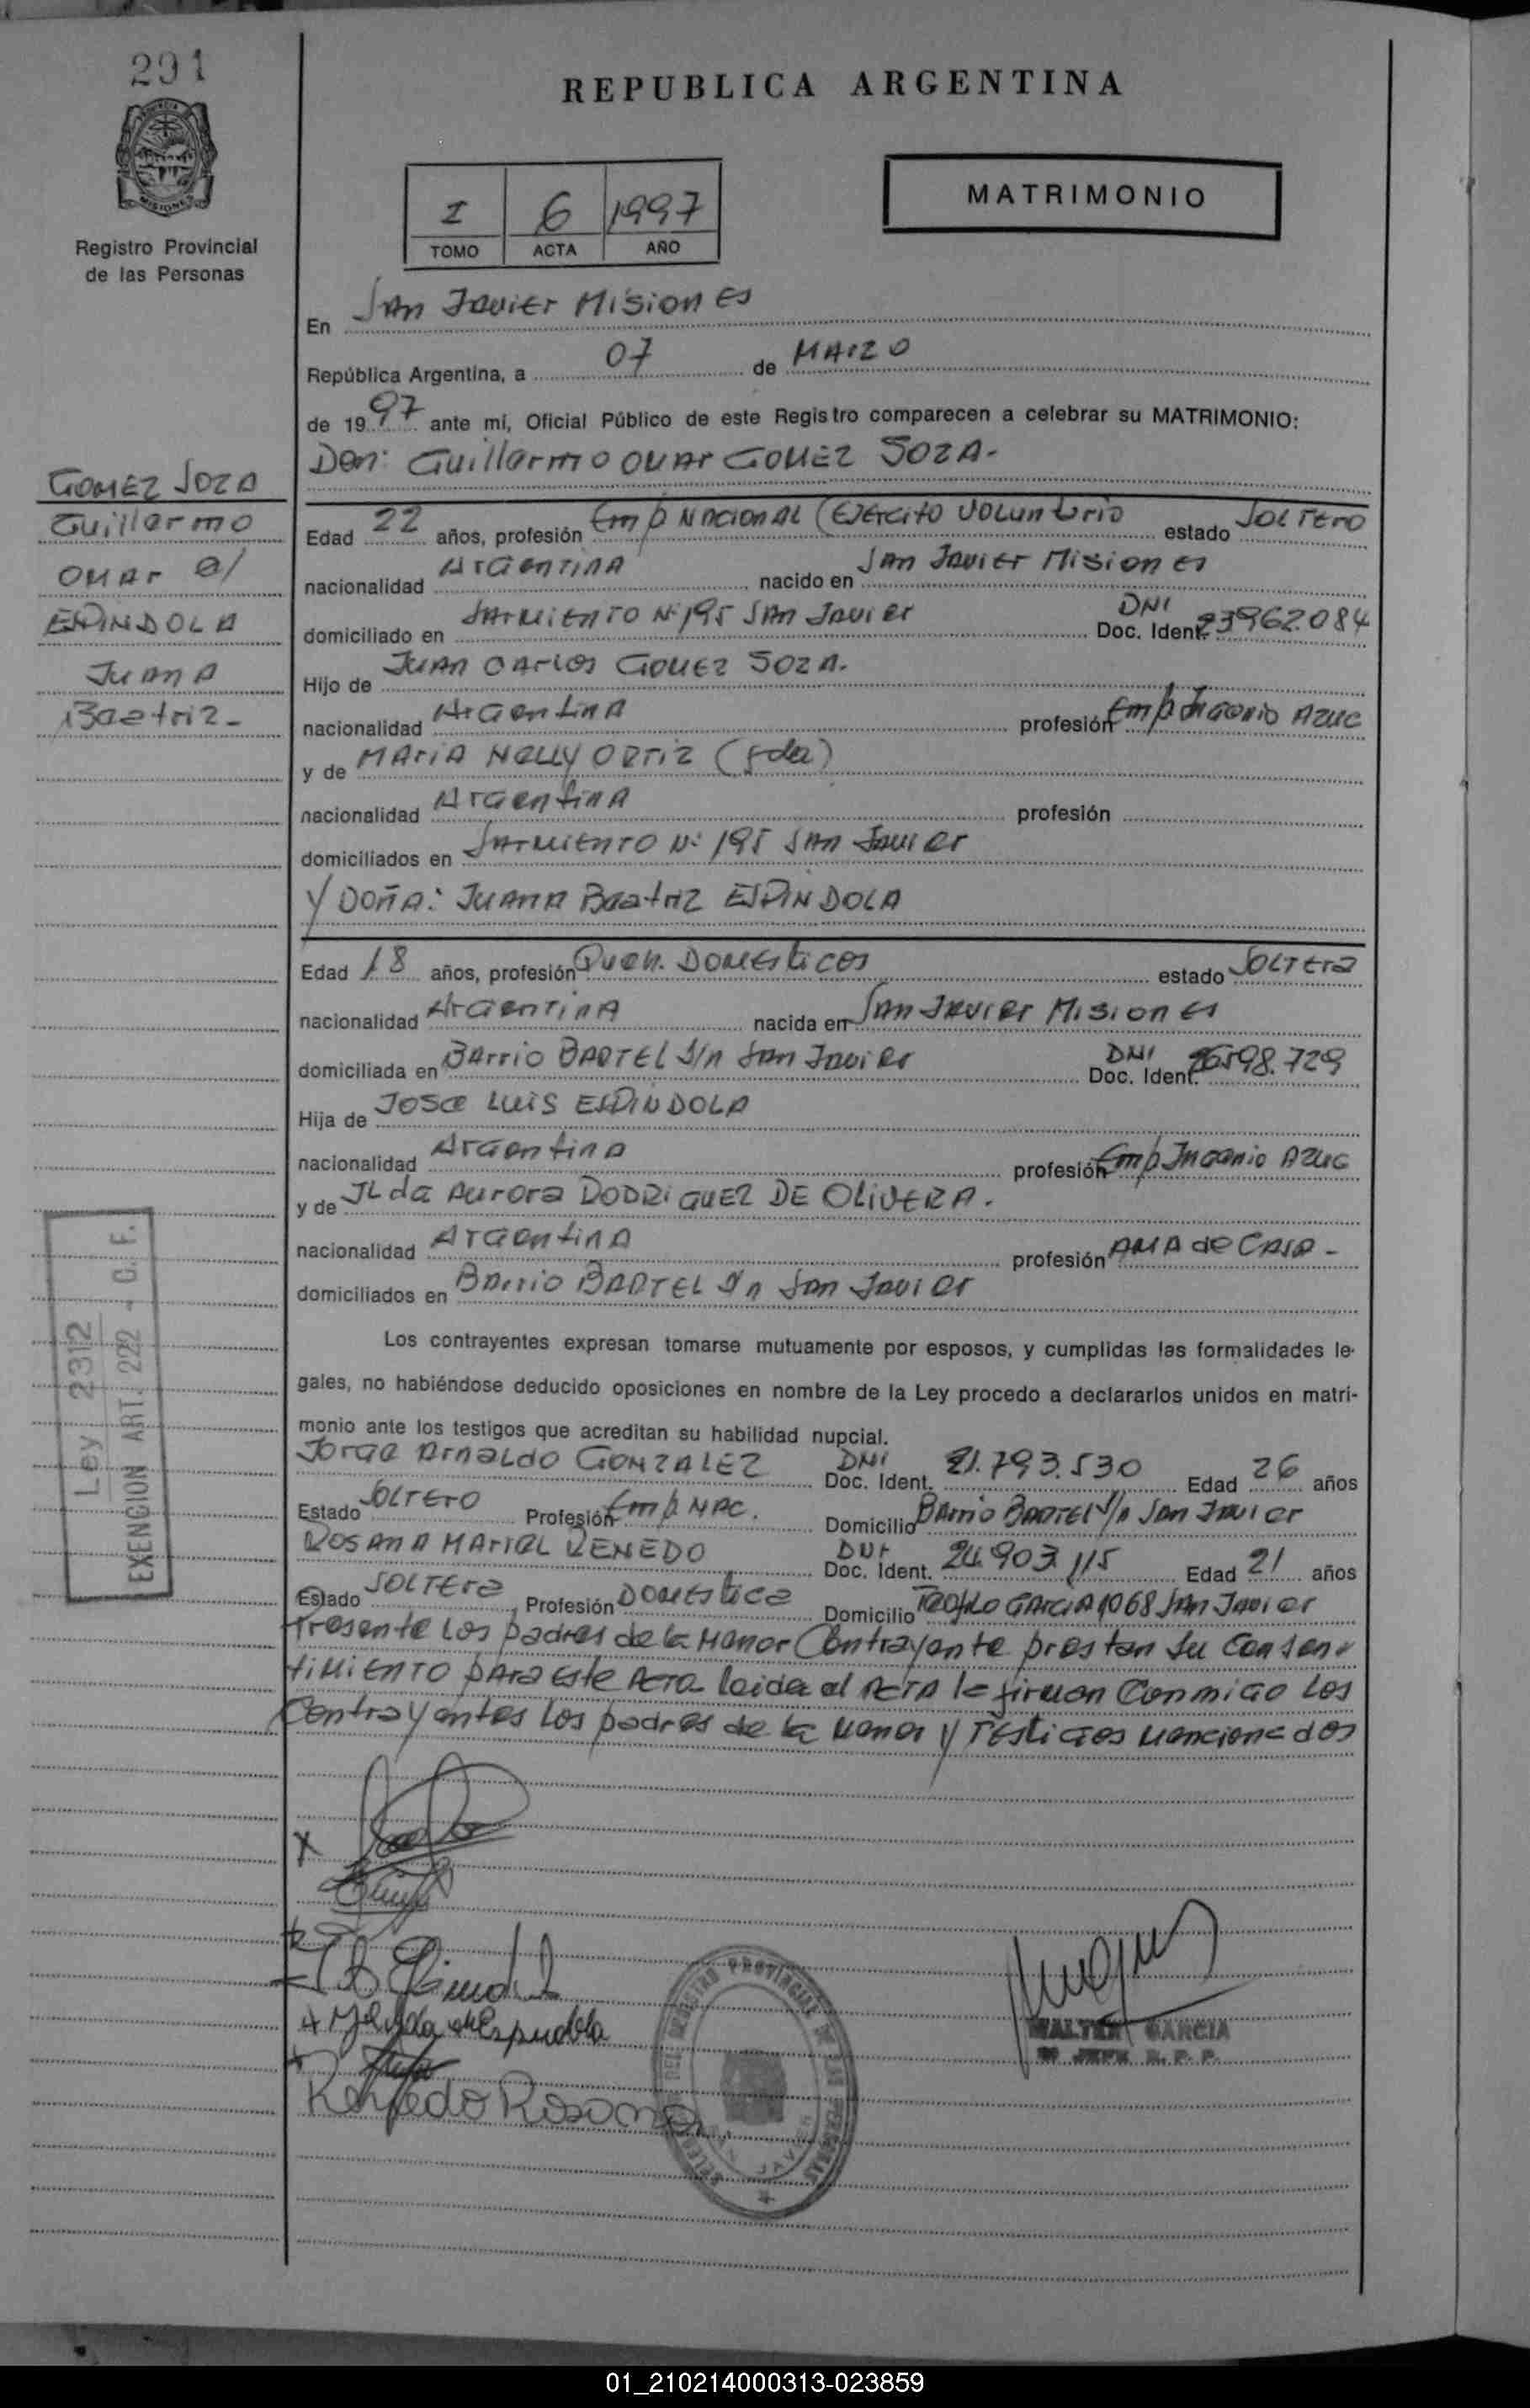 291
REPUBLICA ARGENTINA
MATRIMONIO
I 6 1997
TOMO ACTA AÑO
Registro Provincial
de las Personas
En San Javier Misiones
República Argentina, a 07 de Marzo
de 1997 ante mí, Oficial Público de este Registro comparecen a celebrar su MATRIMONIO:
Don: Guillermo OMAR GOMEZ SOZA.-
GOMEZ SOZA
Guillermo
OMAR C/
ESPINDOLA
Juana
Baetriz-
Edad 22 años, profesión Emp Nacional (Ejercito Voluntario estado SOLTERO
nacionalidad Argentina nacido en San Javier Misiones
domiciliado en Sarmiento Nº 195 San Javier DNI Doc. Ident. 23962.084
Hijo de Juan Carlos Gomez Soza.
nacionalidad Argentina profesión Emp Ingenio Azuc
y de Maria Nelly Ortiz (fda)
nacionalidad Argentina profesión
domiciliados en Sarmiento Nº 195 San Javier
Y DOÑA: Juana Beatriz ESPINDOLA
Edad 18 años, profesión Queh. Domesticos estado Soltera
nacionalidad Argentina nacida en San Javier Misiones
domiciliada en Barrio BARTEL S/n San Javier DNI Doc. Ident. 26598.729
Hija de Jose Luis ESPINDOLA
nacionalidad Argentina profesión Emp Ingenio Azuc
y de Ilda Aurora RODRIGUEZ DE OLIVERA.
nacionalidad Argentina profesión AMA de CASA-
domiciliados en Barrio BARTEL S/n San Javier
Los contrayentes expresan tomarse mutuamente por esposos, y cumplidas las formalidades le-
gales, no habiéndose deducido oposiciones en nombre de la Ley procedo a declararlos unidos en matri-
monio ante los testigos que acreditan su habilidad nupcial.
Jorge Arnaldo GONZALEZ DNI Doc. Ident. 21.793.530 Edad 26 años
Estado SOLTERO Profesión Emp NAC. Domicilio Barrio BARTEL S/n San Javier
ROSANA MARIEL RENEDO DNI Doc. Ident. 24.903.115 Edad 21 años
Estado SOLTERA Profesión Domestica Domicilio Teofilo GARCIA 1068 San Javier
Presente los padres de la Menor Contrayente prestan su consen-
timiento para este Acta leida el Acta la firman Conmigo los
Contrayentes los padres de la menor y Testigos mencionados
Ley 2312
EXENCION ART. 222 - C. F.
Renedo Rosana
WALTER GARCIA
JEFE R. P. P.
DELEGACION DEL REGISTRO PROVINCIAL DE LAS PERSONAS
SAN JAVIER
01_210214000313-023859